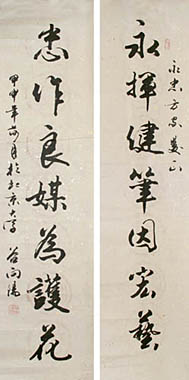 永忠方家正
永揮健筆因宏藝
忠作良媒為護花
甲申年荷月於北京大學 谷向陽